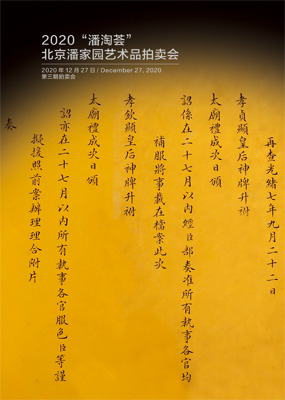 2020“潘淘荟”
北京潘家园艺术品拍卖会
2020 年 12 月 27 日 / December 27, 2020
第三期拍卖会
再查光緒七年九月二十二日
孝貞顯皇后神牌升祔
太廟禮成次日頒
詔係在二十七月以內經臣部奏准所有執事各官均
補服將事載在檔案此次
孝欽顯皇后神牌升祔
太廟禮成次日頒
詔亦在二十七月以內所有執事各官服色臣等謹
擬援照前案辦理理合附片
奏